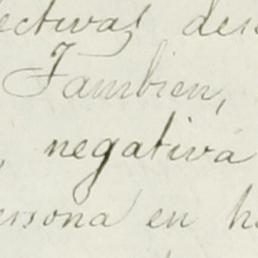 ectivas des
Tambien,
negativa
ersona en h